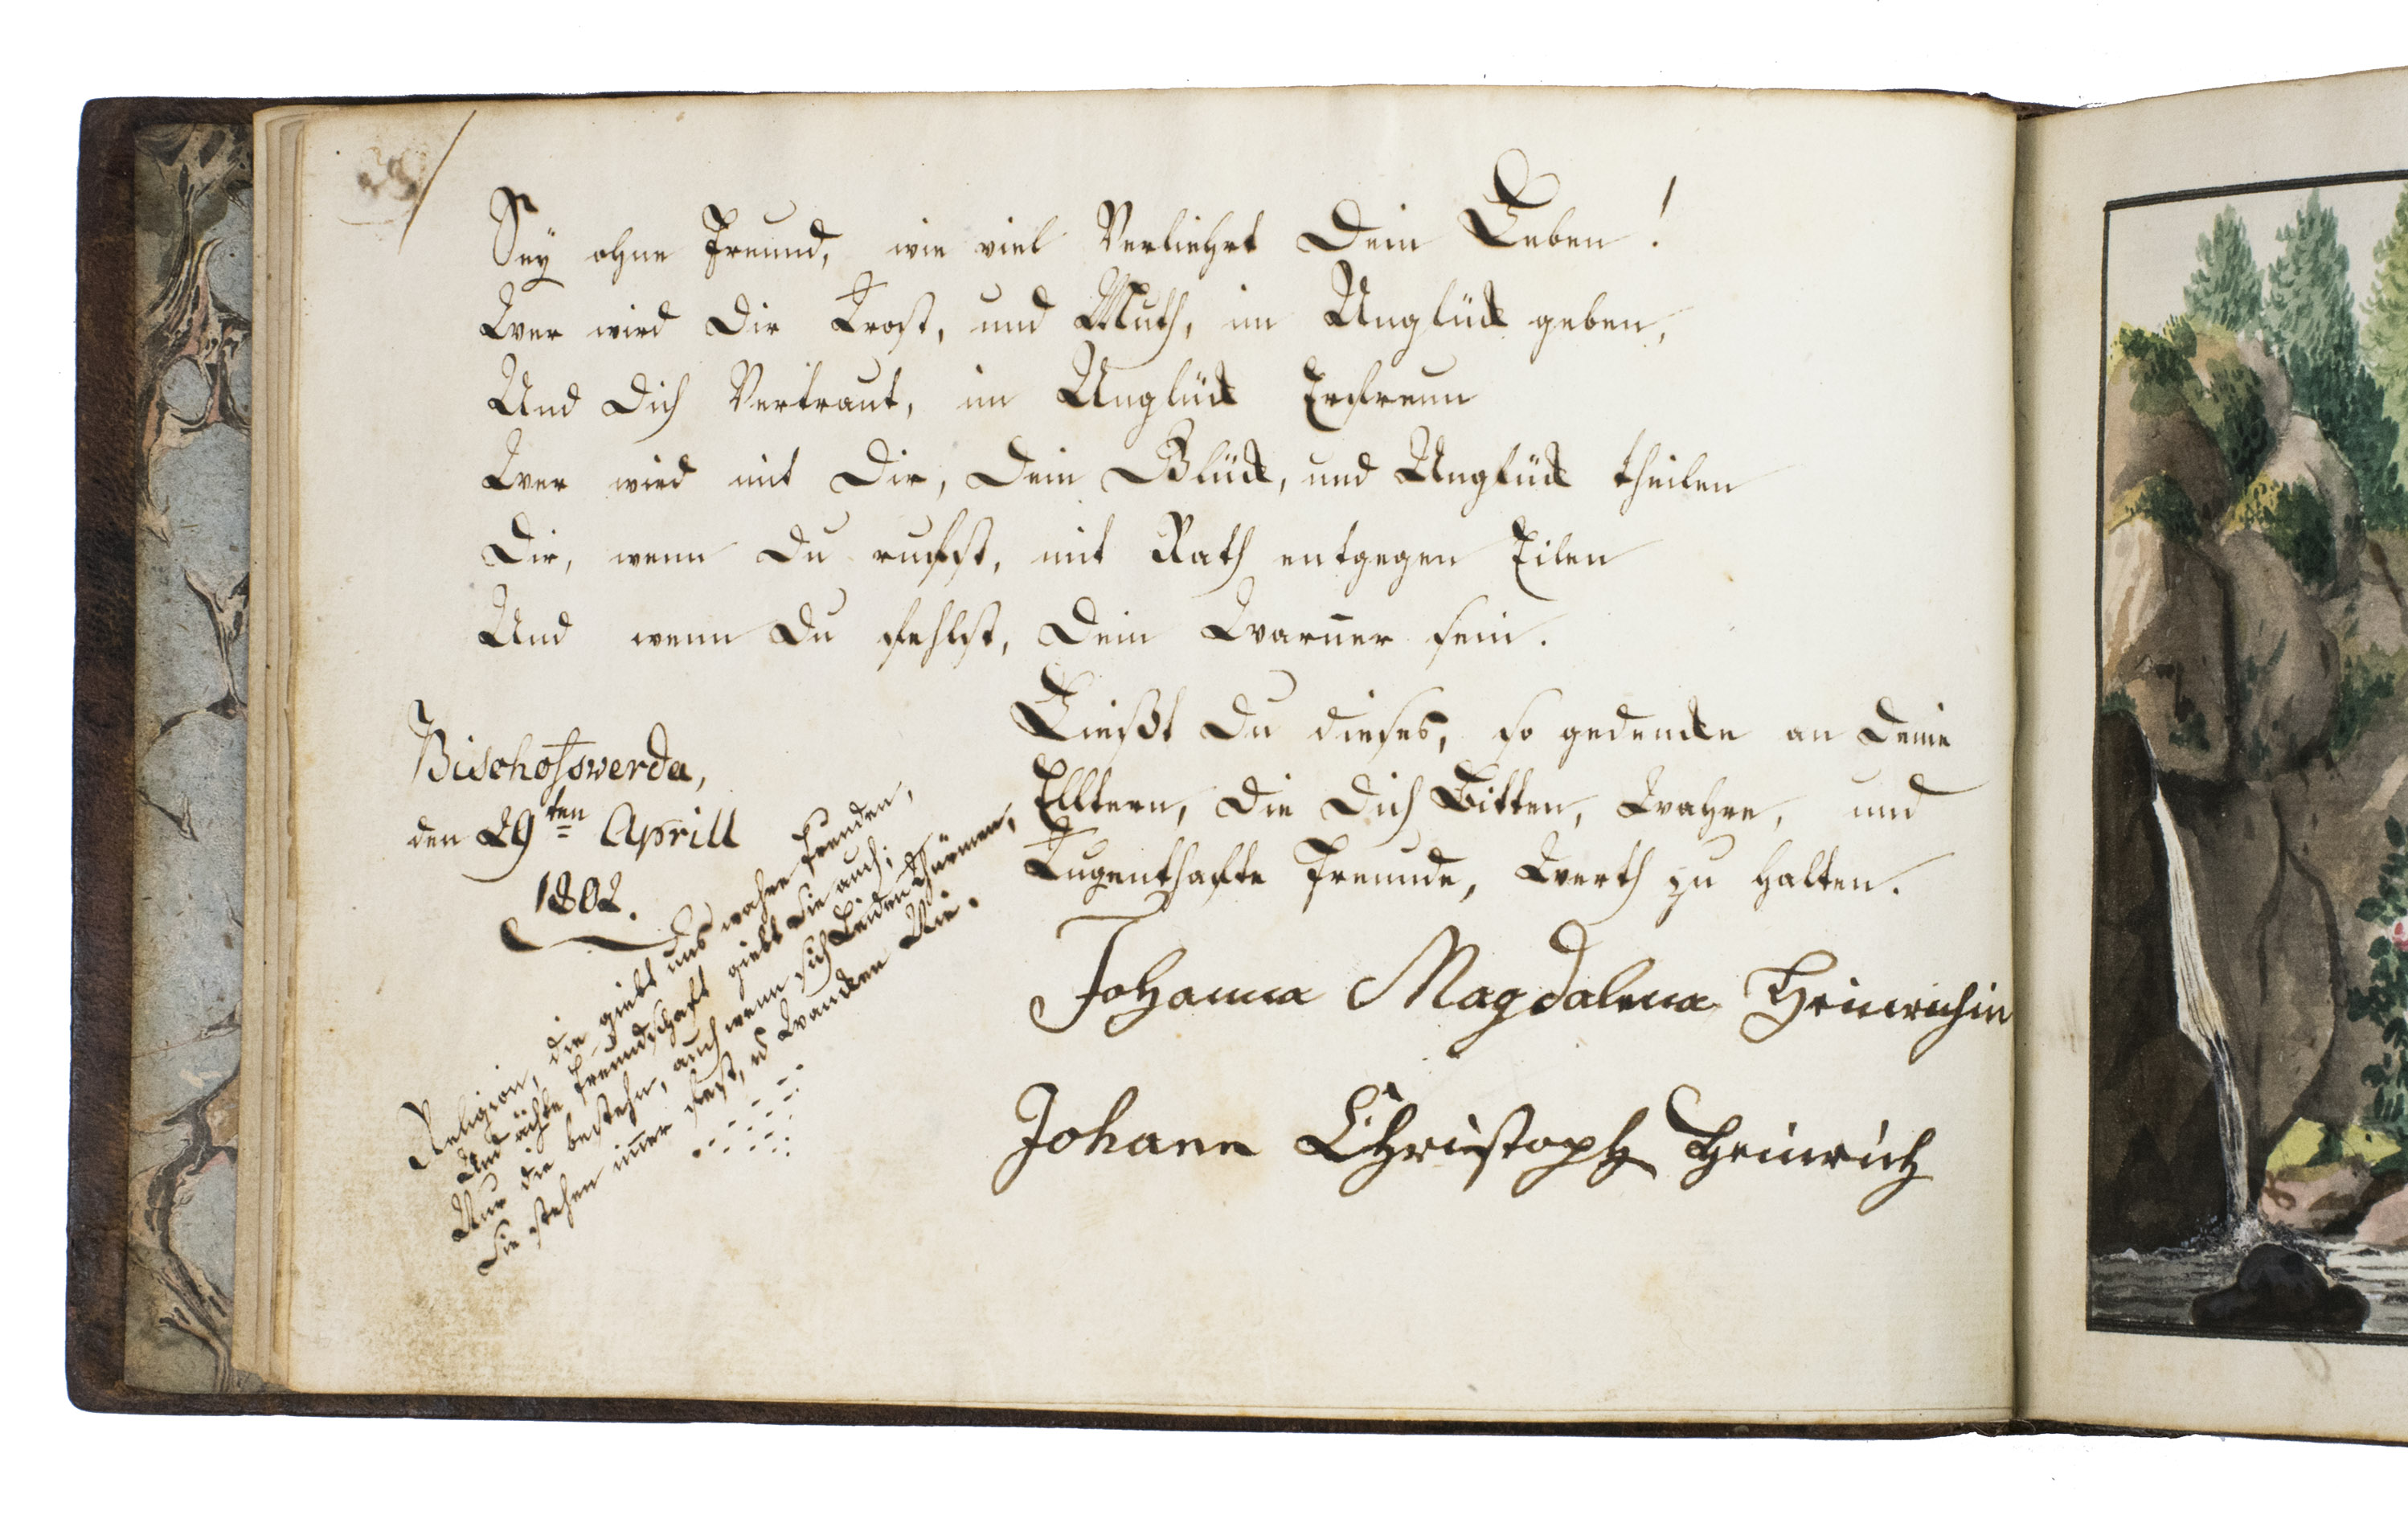 Sey ohne Freund, wie viel Verliehrt Dein Leben!
Wer wird Dir Trost, und Muth, im Unglück geben,
Und Dich Vertraut, im Unglück Erfreun
Wer wird mit Dir, Dein Glück, und Unglück theilen
Dir, wenn Du rufst, mit Rath entgegen Eilen
Und wenn Du fehlst, Dein Warner sein.
Ließt Du dieses, so gedencke an Deine
Elltern, die Dich Bitten, Wahre, und
Tugenthafte Freunde, Werth zu halten.
Johanna Magdalena Heinrichin
Johann Christoph Heinrich
Bischofswerda,
den 29ten Aprill
1802.
Religion, die giebt uns wahre Freuden,
Und ächte Freundschaft giebt Sie auch;
Nur die bestehn, auch wenn sich Leiden thürmen,
Sie stehen im̅er fest, u Wancken Nie.